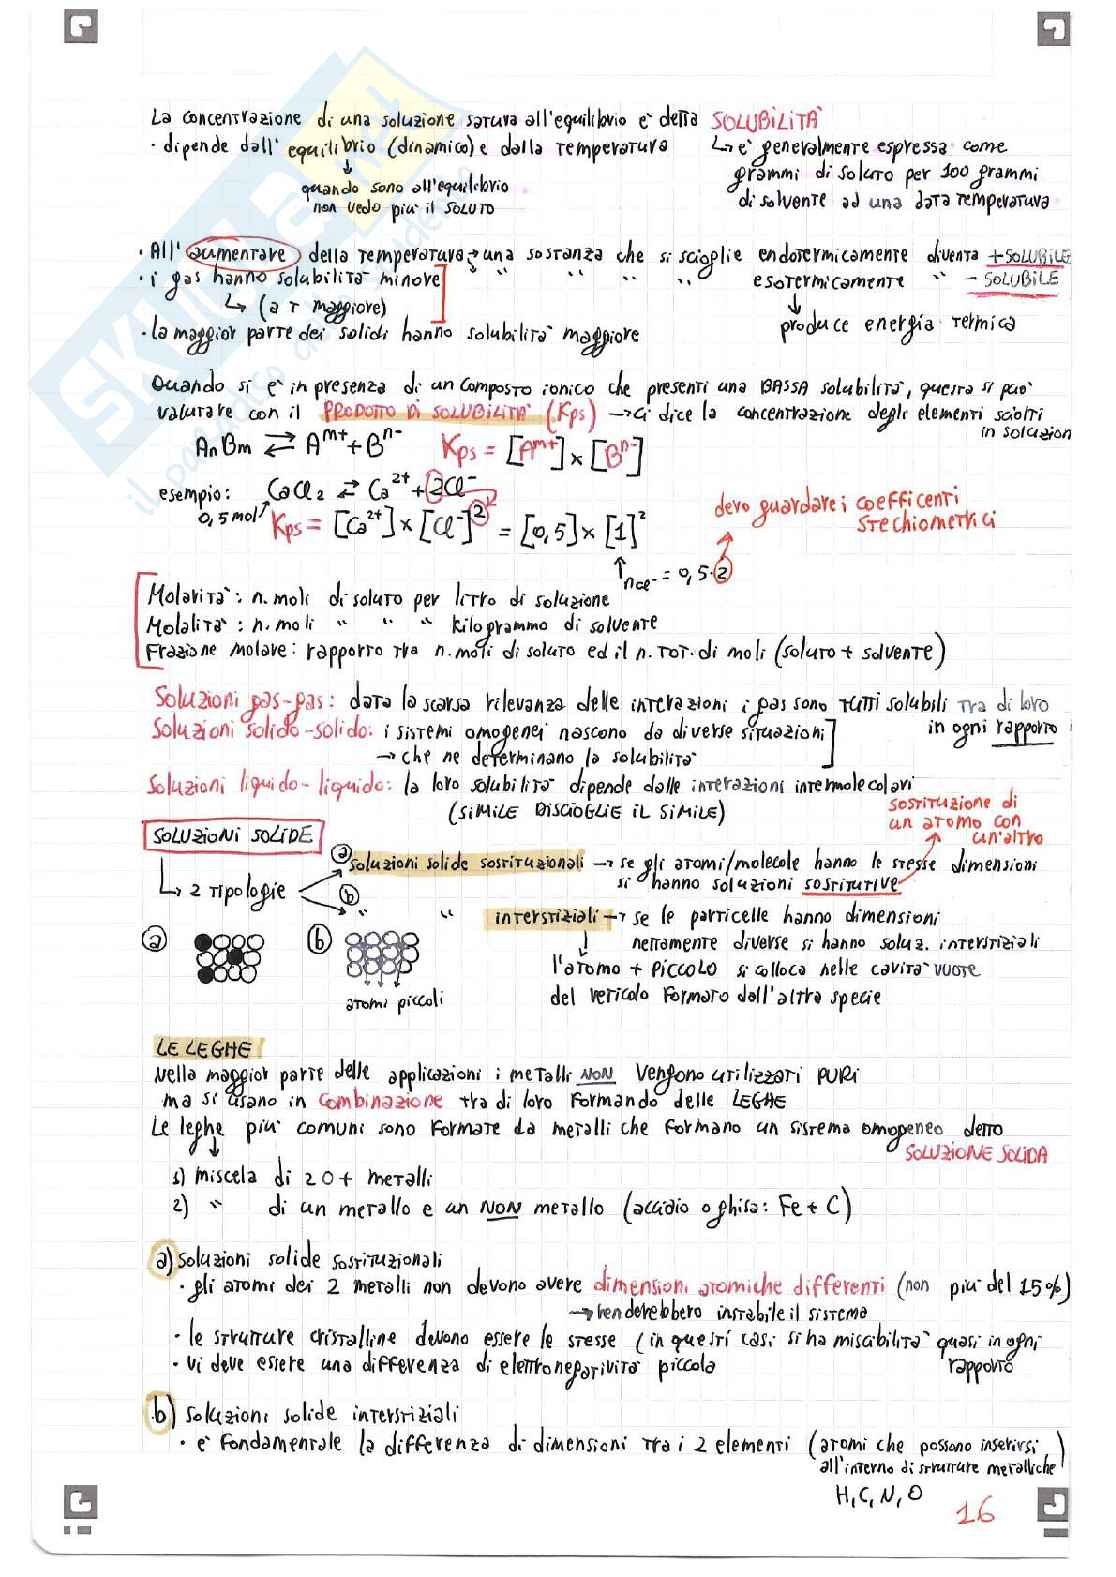 La concentrazione di una soluzione satura all'equilibrio è detta SOLUBILITÀ
· dipende dall'equilibrio (dinamico) e dalla temperatura
↳ è generalmente espressa come
grammi di soluto per 100 grammi
di solvente ad una data temperatura
↓
quando sono all'equilibrio
non vedo più il SOLUTO
· All'aumentare della temperatura → una sostanza che si scioglie endotermicamente diventa + SOLUBILE
" " " esotermicamente " - SOLUBILE
↓
produce energia termica
· i gas hanno solubilità minore
↳ (a T maggiore)
· la maggior parte dei solidi hanno solubilità maggiore
Quando si è in presenza di un composto ionico che presenti una BASSA solubilità, questa si può
valutare con il PRODOTTO DI SOLUBILITÀ (Kps) → ci dice la concentrazione degli elementi sciolti
in soluzion
AnBm ⇄ Aᵐ⁺ + Bⁿ⁻ Kps = [Aᵐ⁺] x [Bⁿ⁻]
esempio: CaCl₂ ⇄ Ca²⁺ + 2Cl⁻
0,5 mol
Kps = [Ca²⁺] x [Cl⁻]² = [0,5] x [1]²
devo guardare i coefficenti
stechiometrici
↑ nCl⁻ = 0,5·2
Molarità: n. moli di soluto per litro di soluzione
Molalità: n. moli " " " kilogrammo di solvente
Frazione molare: rapporto tra n. moli di soluto ed il n. TOT. di moli (soluto + solvente)
Soluzioni gas-gas: data la scarsa rilevanza delle interazioni i gas sono TUTTI solubili tra di loro
in ogni rapporto
Soluzioni solido-solido: i sistemi omogenei nascono da diverse situazioni
→ che ne determinano la solubilità
Soluzioni liquido-liquido: la loro solubilità dipende dalle interazioni intermolecolari
(SIMILE DISCIOGLIE IL SIMILE)
sostituzione di
un atomo con
un'altro
SOLUZIONI SOLIDE
↳ 2 tipologie
a soluzioni solide sostituzionali → se gli atomi/molecole hanno le stesse dimensioni
si hanno soluzioni sostitutive
b " " interstiziali → se le particelle hanno dimensioni
nettamente diverse si hanno soluz. interstiziali
↓
l'atomo + PICCOLO si colloca nelle cavità vuote
del verticolo formato dall'altra specie
a
b
atomi piccoli
LE LEGHE
Nella maggior parte delle applicazioni i metalli NON vengono utilizzati PURI
ma si usano in combinazione tra di loro formando delle LEGHE
Le leghe più comuni sono formate da metalli che formano un sistema omogeneo detto
SOLUZIONE SOLIDA
↓
1) miscela di 2 o + metalli
2) " di un metallo e un NON metallo (acciaio o ghisa: Fe + C)
a) soluzioni solide sostituzionali
· gli atomi dei 2 metalli non devono avere dimensioni atomiche differenti (non più del 15%)
→ renderebbero instabile il sistema
· le strutture cristalline devono essere le stesse (in questi casi si ha miscibilità quasi in ogni
rapporto
· vi deve essere una differenza di elettronegatività piccola
b) soluzioni solide interstiziali
· è fondamentale la differenza di dimensioni tra i 2 elementi (atomi che possono inserirsi
all'interno di strutture metalliche)
H, C, N, O
16